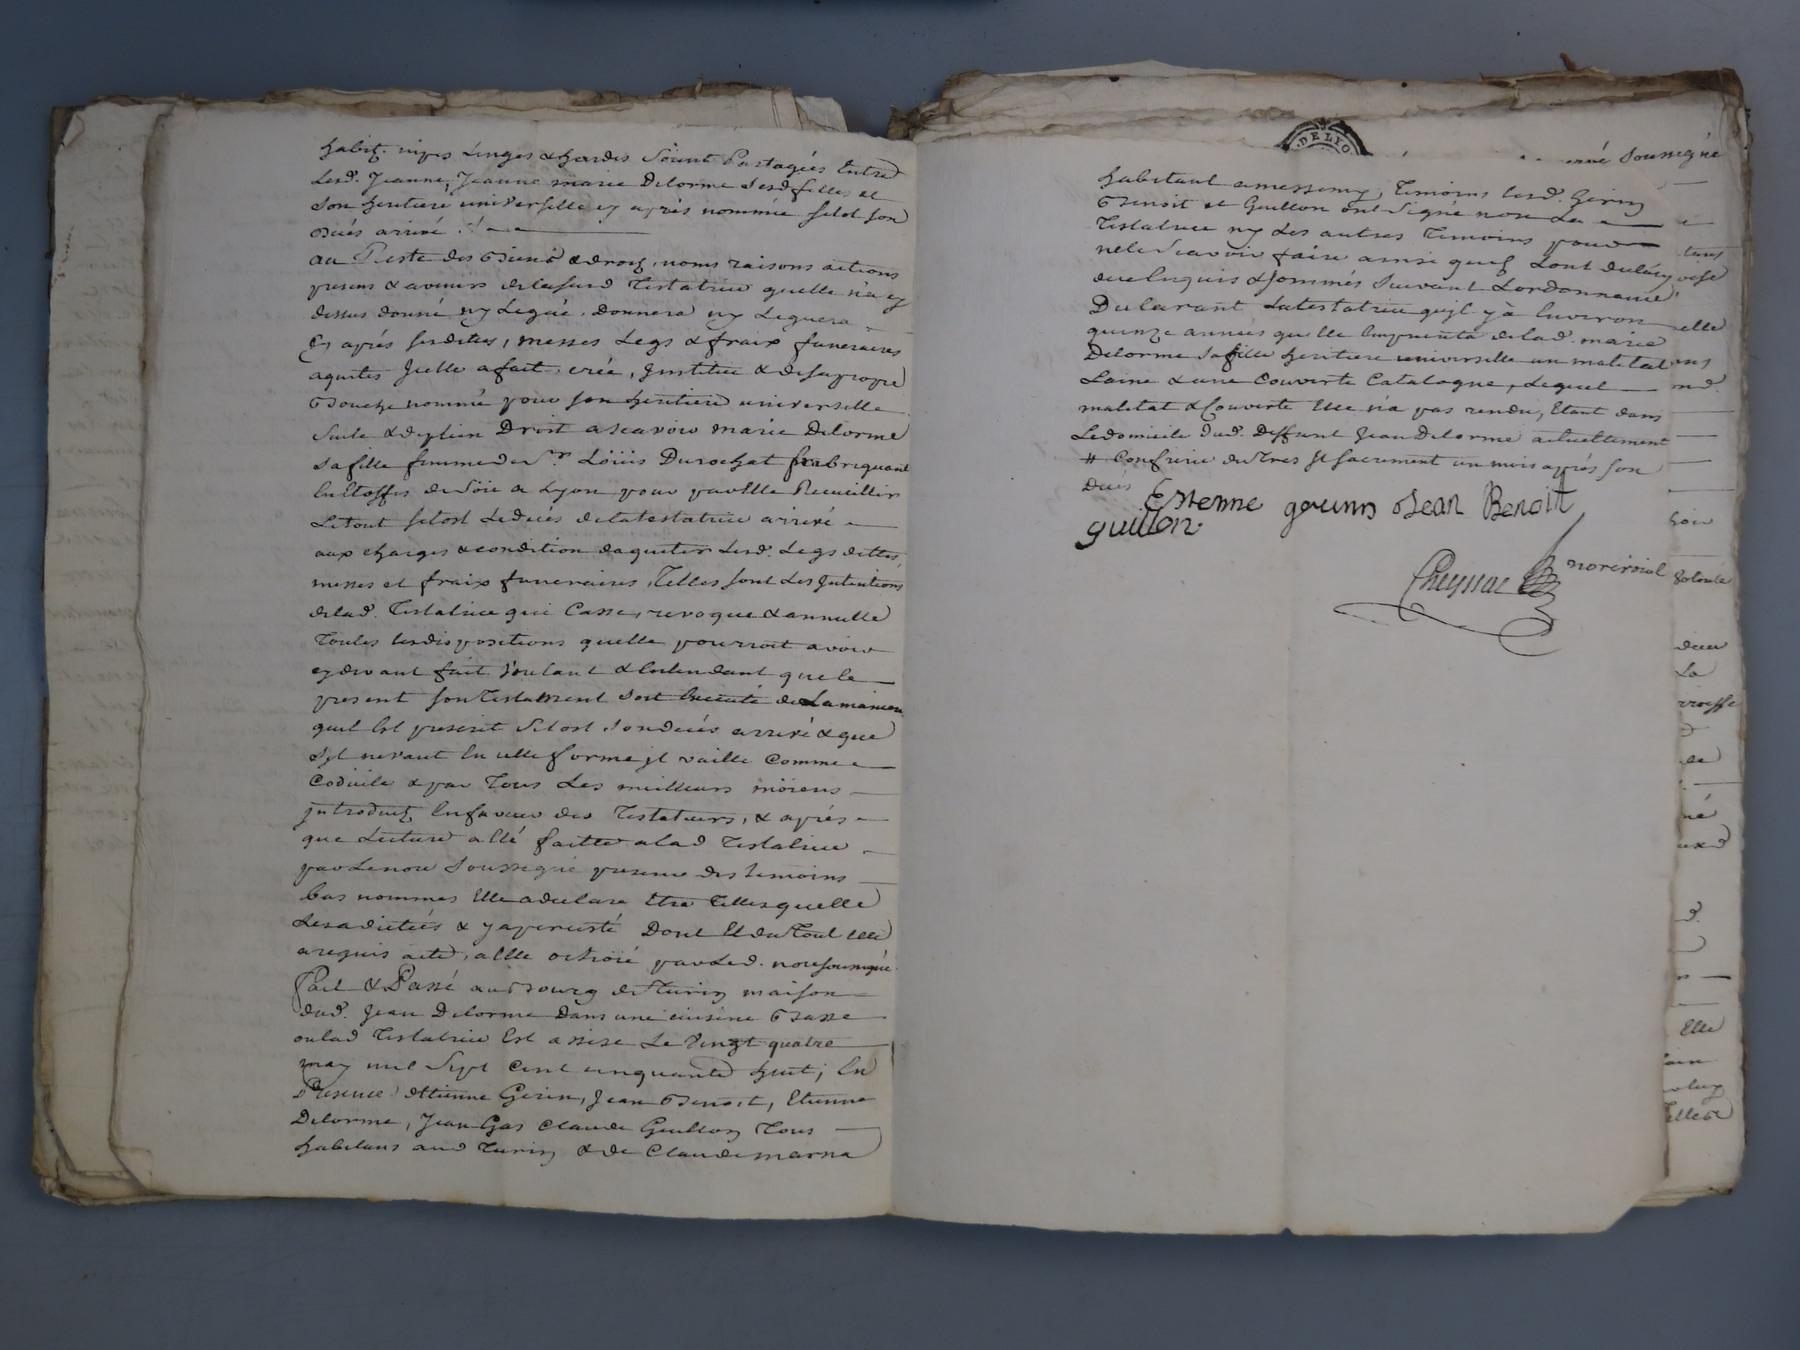 habits nipes Linges & hardes Soient Partagées Entre
Lesd. Jeanne, Jeanne marie Delorme Sesd filles et
Son heritiere universelle cy après nommée sitot son
décés arrivé
au Reste des Biens & droits, noms raisons actions
presens & avenirs de laquelle Testatrice quelle n'a cy
dessus donné ny Legué, donnera ny Leguera
Et aprés ses dettes, messes Legs & fraix funeraires
aquités Icelle a fait, créé, Institué & de sa propre
Bouche nommé pour son heritiere universelle
Seule & de plein Droit a scavoir marie Delorme
Sa fille femme de Sr. Loüis Durochat fabriquant
En Etoffes de Soie a Lyon pour par Elle Recueillir
Le tout sitost Le décés de la testatrice arrivé
aux charges & condition daquiter Lesd. Legs dettes,
messes et fraix funeraires, Telles sont Les Intentions
de lad. Testatrice qui Casse, revoque & annulle
Toutes les dispositions quelle pourroit avoir
cy devant fait Voulant & Entendant que le
present son Testament Soit Executé de La maniere
quil Est prescrit Sitost Son décés arrivé & que
Sil ne vaut En cette forme jl vaille Comme
Codicile & par Tous Les meilleurs moiens
jntroduits En faveur des Testateurs, & aprés
que Lecture a Eté faitte a lad Testatrice
par Le nore Soussigné presence des temoins
bas nommes Elle a declaré Etre Telles quelle
Les a dictées & y a persisté Dont Et du Tout Elle
a requis acte, a Elle octroié par Led. nore soussigné
Fait & Passé au Bourg de Thurin maison
dud. Jean Delorme dans une cuisine Basse
ou lad Testatrice Est assise Le vingt quatre
may mil Sept Cent cinquante huit, En
Presence d'Etienne Gerin, Jean Benoit, Etienne
Delorme, Jean Gas Claude Guillon Tous
habitans aud Turin & de Claude marna
DELYO
Soussigné
habitant a messimy, Temoins lesd. Gerin
Benoit et Guillon ont Signé non La
Testatrice ny Les autres Temoins pour
ne le Scavoir faire ainsi quils Sont declaré
de ce Enquis & sommés Suivant Lordonnance
Declarant La testatrice quil y a Environ
quinze années quelle Emprunta de lad. marie
Delorme Sa fille heritiere universelle un matelat
Laine & une Couverte Catalogne, Lequel
matelat & Couverte Elle n'a pas rendu, Etant dans
Le domicile dud. Deffunt Jean Delorme actuellement
# Confrerie du Tres St Sacrement un mois aprés son
Décés
Estienne gerin Jean Benoit
guillon
Cheyssac nore roial
elle
ens
La
Elle